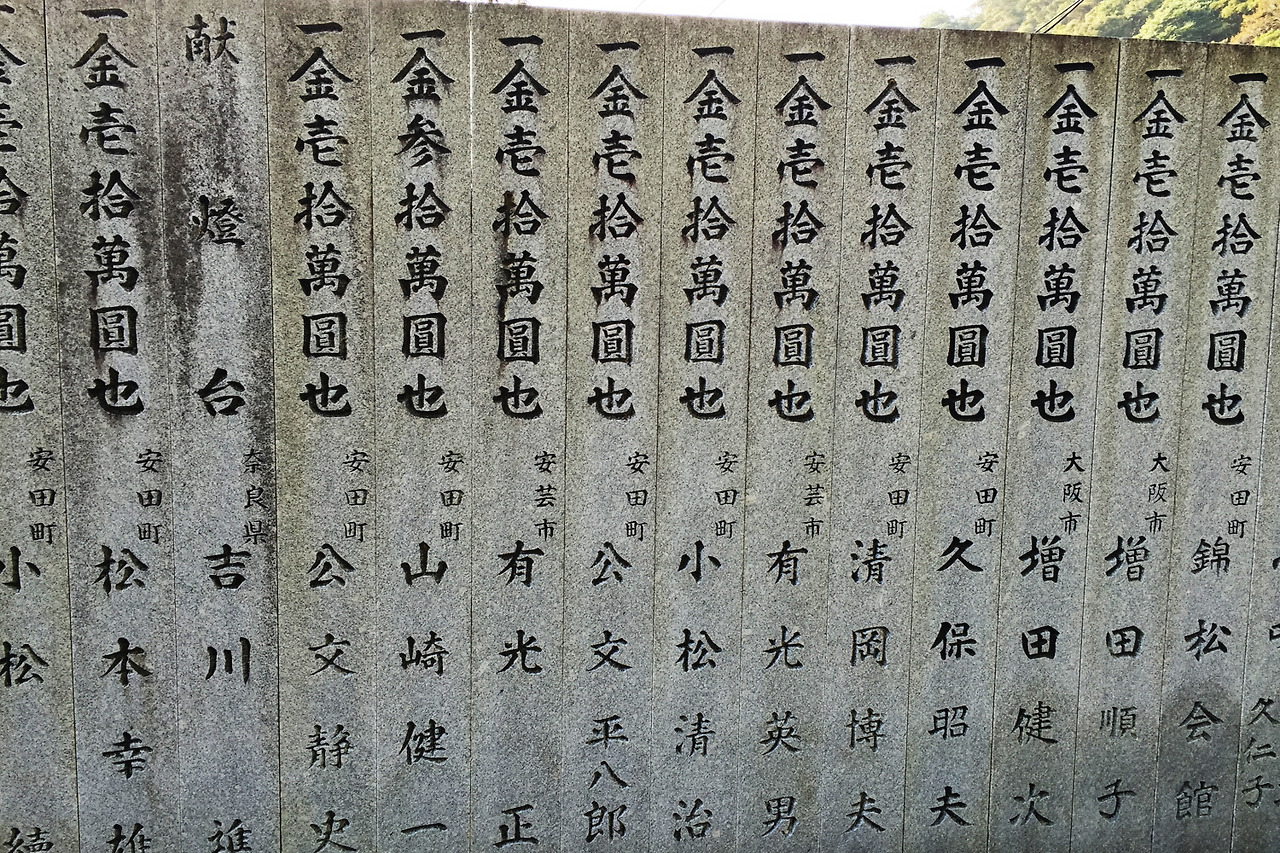 一金壱拾萬圓也 安田町 錦松会館
一金壱拾萬圓也 大阪市 増田順子
一金壱拾萬圓也 大阪市 増田健次
一金壱拾萬圓也 安田町 久保昭夫
一金壱拾萬圓也 安田町 清岡博夫
一金壱拾萬圓也 安芸市 有光英男
一金壱拾萬圓也 安田町 小松清治
一金壱拾萬圓也 安田町 公文平八郎
一金壱拾萬圓也 安芸市 有光正
一金参拾萬圓也 安田町 山崎健一
一金壱拾萬圓也 安田町 公文静史
献燈台 奈良県 吉川進
一金壱拾萬圓也 安田町 松本幸雄
金壱拾萬圓也 安田町 小松續